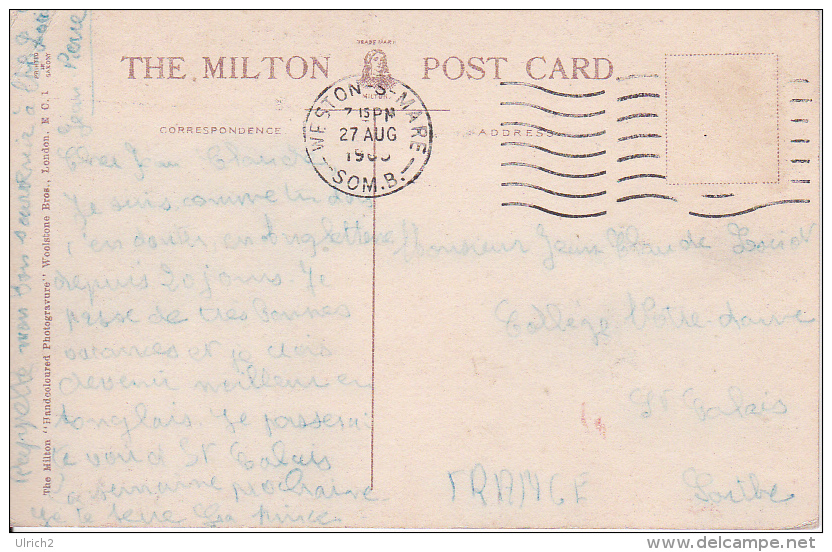 TRADE MARK
THE MILTON POST CARD
MILTON
CORRESPONDENCE
ADDRESS
WESTON-S-MARE
7 15 PM
27 AUG
SOM.B.
Cher Jean Claude
Je suis comme tu dois
t'en douter en Angleterre
depuis 20 jours. Je
passe de tres bonnes
vacances et je dois
devenir meilleur en
anglais. Je passerai
te voir à St Calais
la semaine prochaine
je te serre la
Rappelle mon bon souvenir à
Jean Pierre
Monsieur Jean Claude
Collège Notre-dame
St Calais
FRANCE Sarthe
The Milton "Handcoloured Photogravure" Woolstone Bros., London. E C. 1
PRINTED IN SAXONY
© Ulrich2
www.delcampe.net